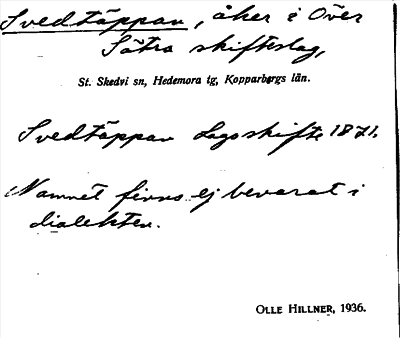 Svedtäppan, åker i Över
Sätra skifteslag,
St. Skedvi sn, Hedemora tg, Kopparbergs län.
Svedtäppan Lagaskifte 1871.
Namnet finns ej bevarat i
dialekten.
OLLE HILLNER, 1936.